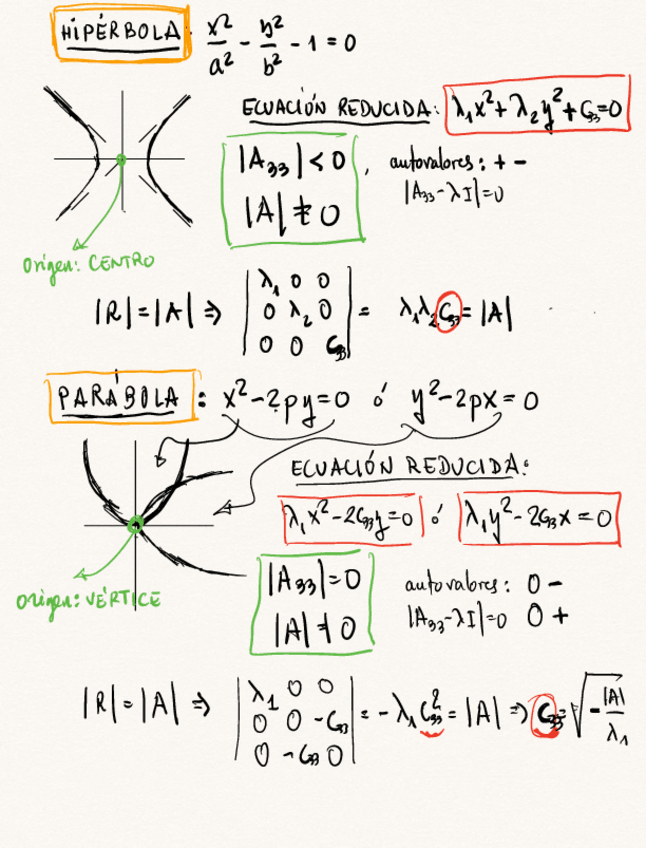 HIPÉRBOLA: x²/a² - y²/b² - 1 = 0
ECUACIÓN REDUCIDA: λ₁x² + λ₂y² + C₃₃ = 0
|A₃₃| < 0, autovalores: + -
|A| ≠ 0 |A₃₃ - λI| = 0
Origen: CENTRO
|R| = |A| ⇒ |λ₁ 0 0
0 λ₂ 0
0 0 C₃₃| = λ₁λ₂C₃₃ = |A|
PARÁBOLA: x² - 2py = 0 ó y² - 2px = 0
ECUACIÓN REDUCIDA:
λ₁x² - 2C₃₃y = 0 ó λ₁y² - 2C₃₃x = 0
|A₃₃| = 0 autovalores: 0 -
Origen: VÉRTICE |A| ≠ 0 |A₃₃ - λI| = 0 0 +
|R| = |A| ⇒ |λ₁ 0 0
0 0 -C₃₃
0 -C₃₃ 0| = -λ₁C₃₃² = |A| ⇒ C₃₃ = √(-|A|/λ₁)